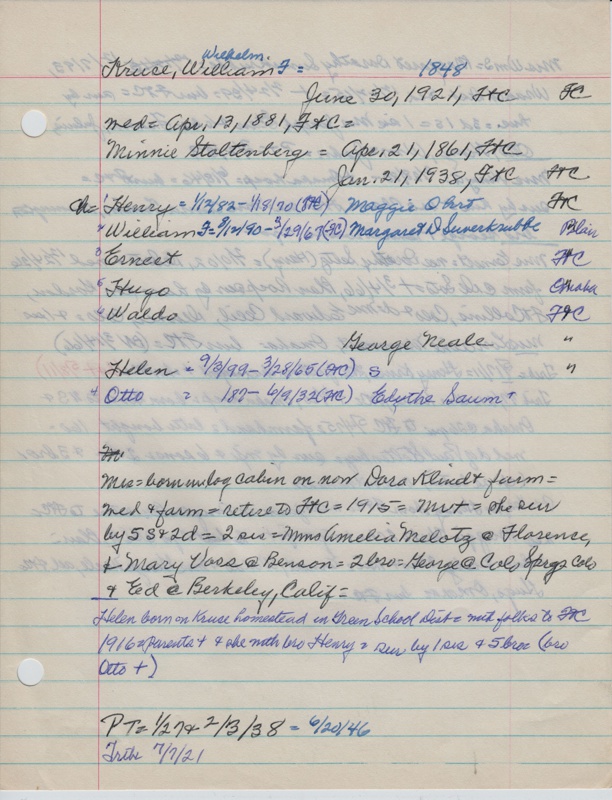 Wilhelm
Kruse, William F = 1848
June 30, 1921, FtC FC
med = Apr, 13, 1881, FtC =
Minnie Stoltenberg = Apr. 21, 1861, FtC
Jan. 21, 1938, FtC FtC
ch = 1 Henry = 1/12/82 - 1/18/70 (FtC) Maggie Ohrt FtC
William F = 8/12/90 - 3/29/67 (FtC) Margaret D Suverkrubbe Blair
3 Ernest FtC
5 Hugo Omaha
6 Waldo FtC
George Neale "
Helen = 9/3/99 - 3/28/65 (FtC) S "
4 Otto = 187 - 6/9/32 (FtC) Edythe Saum +
Mrs = born in log cabin on now Dora Klindt farm =
med & farm = retire to FtC = 1915 = Mr + = she sur
by 5 s & 2 d = 2 sis = Mmes Amelia Melotz @ Florence,
& Mary Voss @ Benson = 2 bro = George @ Colo Sprgs Colo
& Ed @ Berkeley, Calif =
Helen born on Kruse homestead in Green School Dist = mt folks to FtC
1916 = parents + & she with bro Henry = sur by 1 sis & 5 bros (bro
Otto +)
PT = 1/27 & 2/3/38 = 6/20/46
Trib 7/7/21